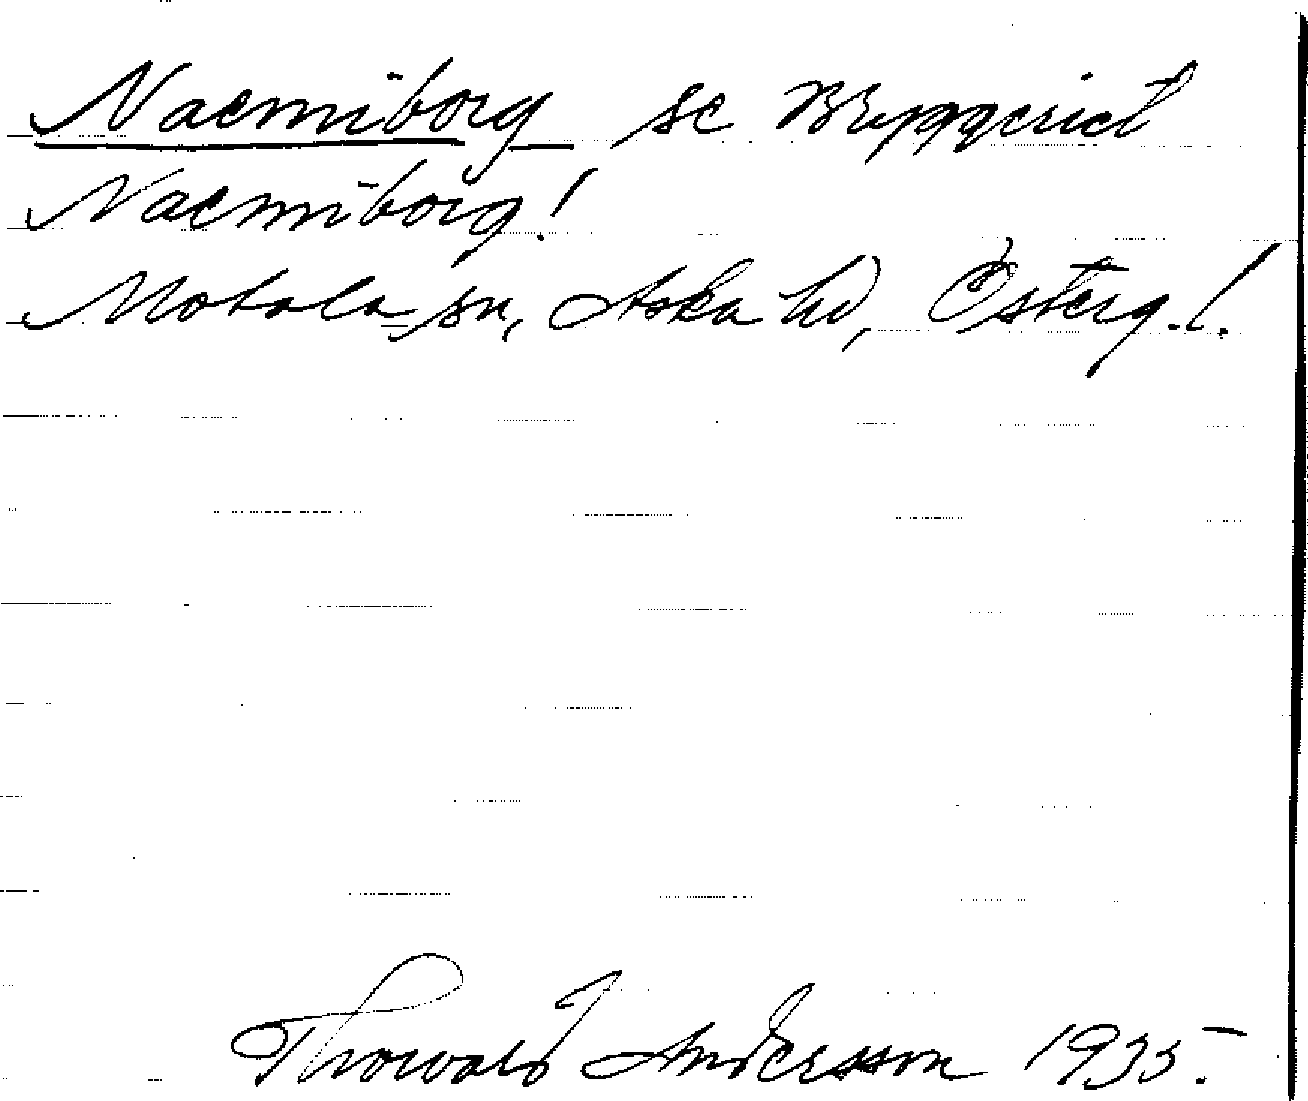 Naemiborg se Bryggeriet
Naemiborg!
Motala sn, Aska hd, Österg. l.
Thorwald Andersson 1935.